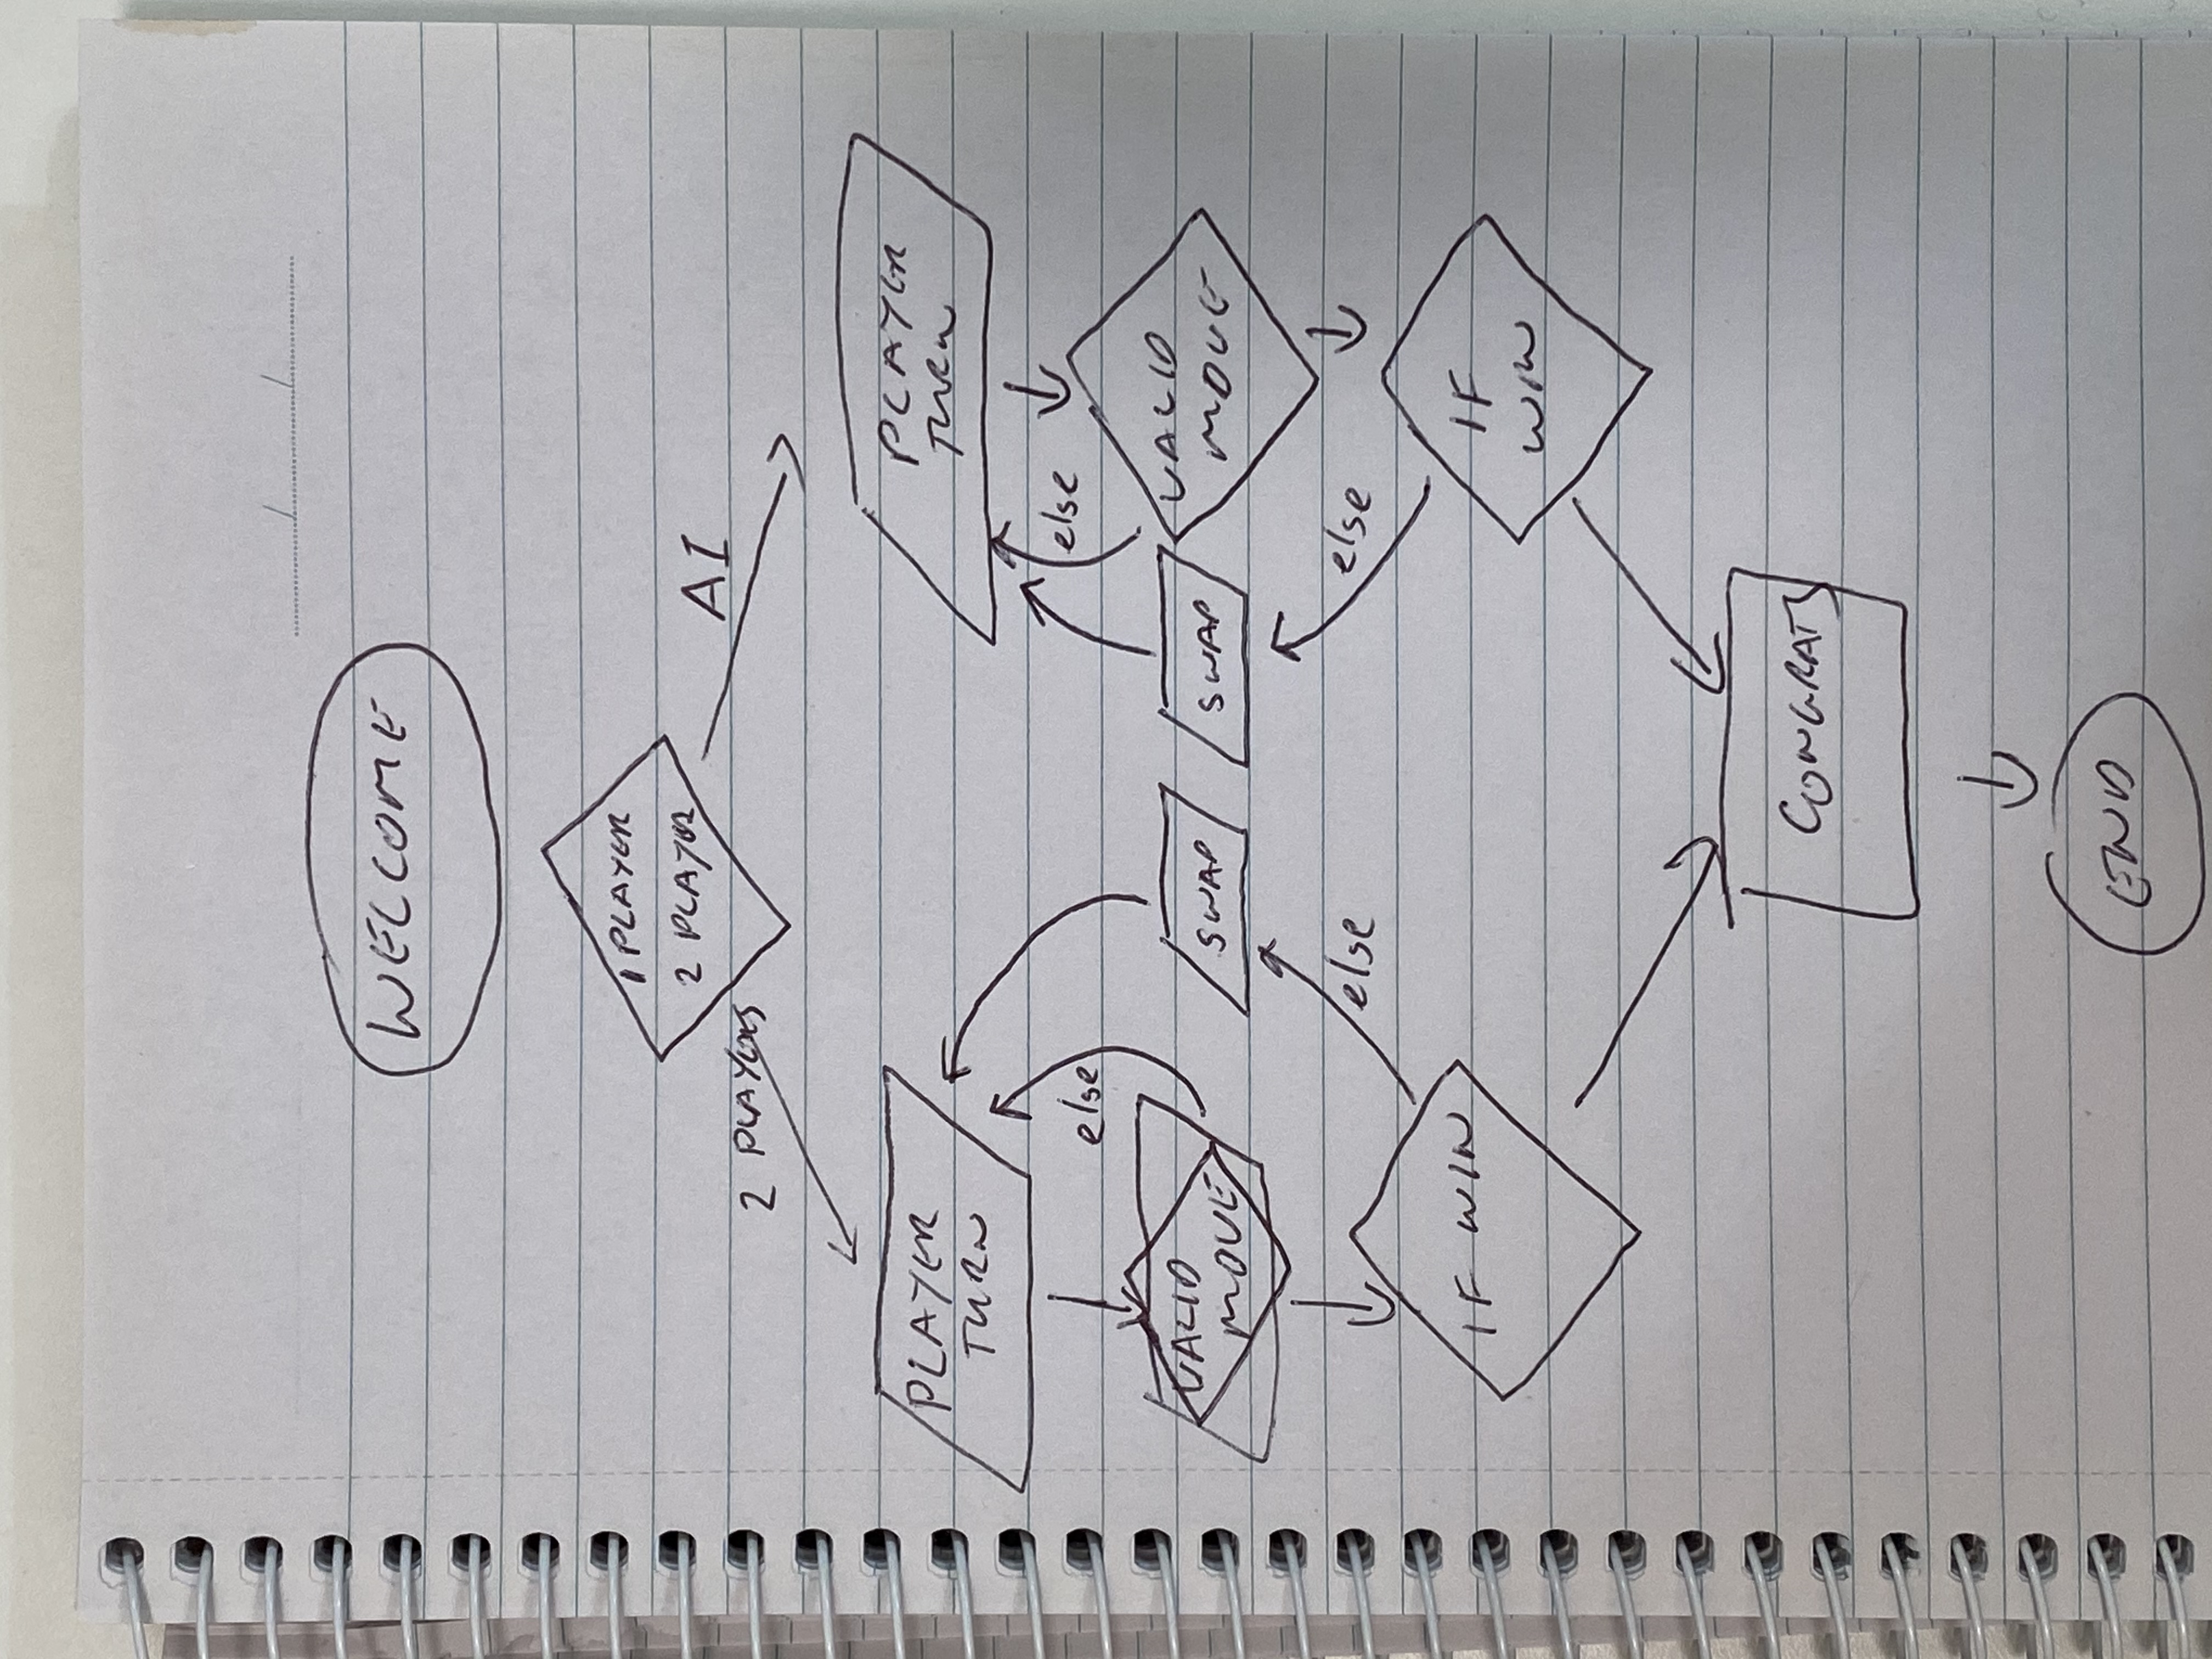 WELCOME
1 PLAYER
2 PLAYER
2 PLAYERS
AI
PLAYER
TURN
PLAYER
TURN
else
else
VALID
MOVE
SWAP
SWAP
VALID
MOVE
else
else
IF WIN
IF
WIN
CONGRATS
END